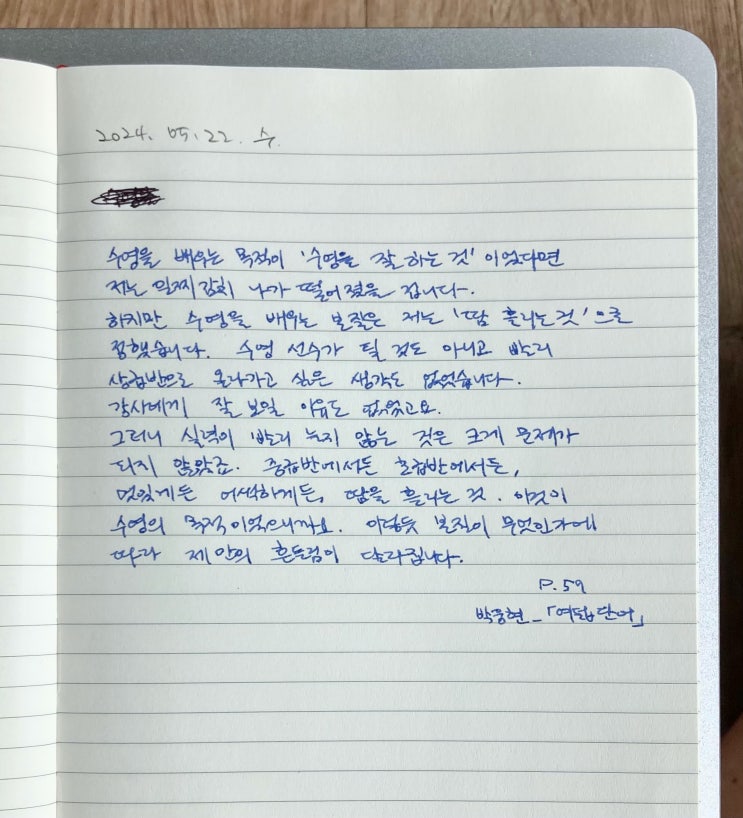 2024. 05. 22. 수.
수영을 배우는 목적이 '수영을 잘 하는 것' 이었다면
저는 일찌감치 나가 떨어졌을 겁니다.
하지만 수영을 배우는 본질은 저는 '땀 흘리는 것' 으로
정했습니다. 수영 선수가 될 것도 아니고 빨리
상급반으로 올라가고 싶은 생각도 없었습니다.
강사에게 잘 보일 이유도 없었고요.
그러니 실력이 빨리 늘지 않는 것은 크게 문제가
되지 않았죠. 중급반에서든 초급반에서든,
멋있게든 어색하게든, 땀을 흘리는 것. 이것이
수영의 목적이었으니까요. 이렇듯 본질이 무엇인가에
따라 제 안의 흔들림이 달라집니다.
P. 59
박웅현 _ 「여덟 단어」